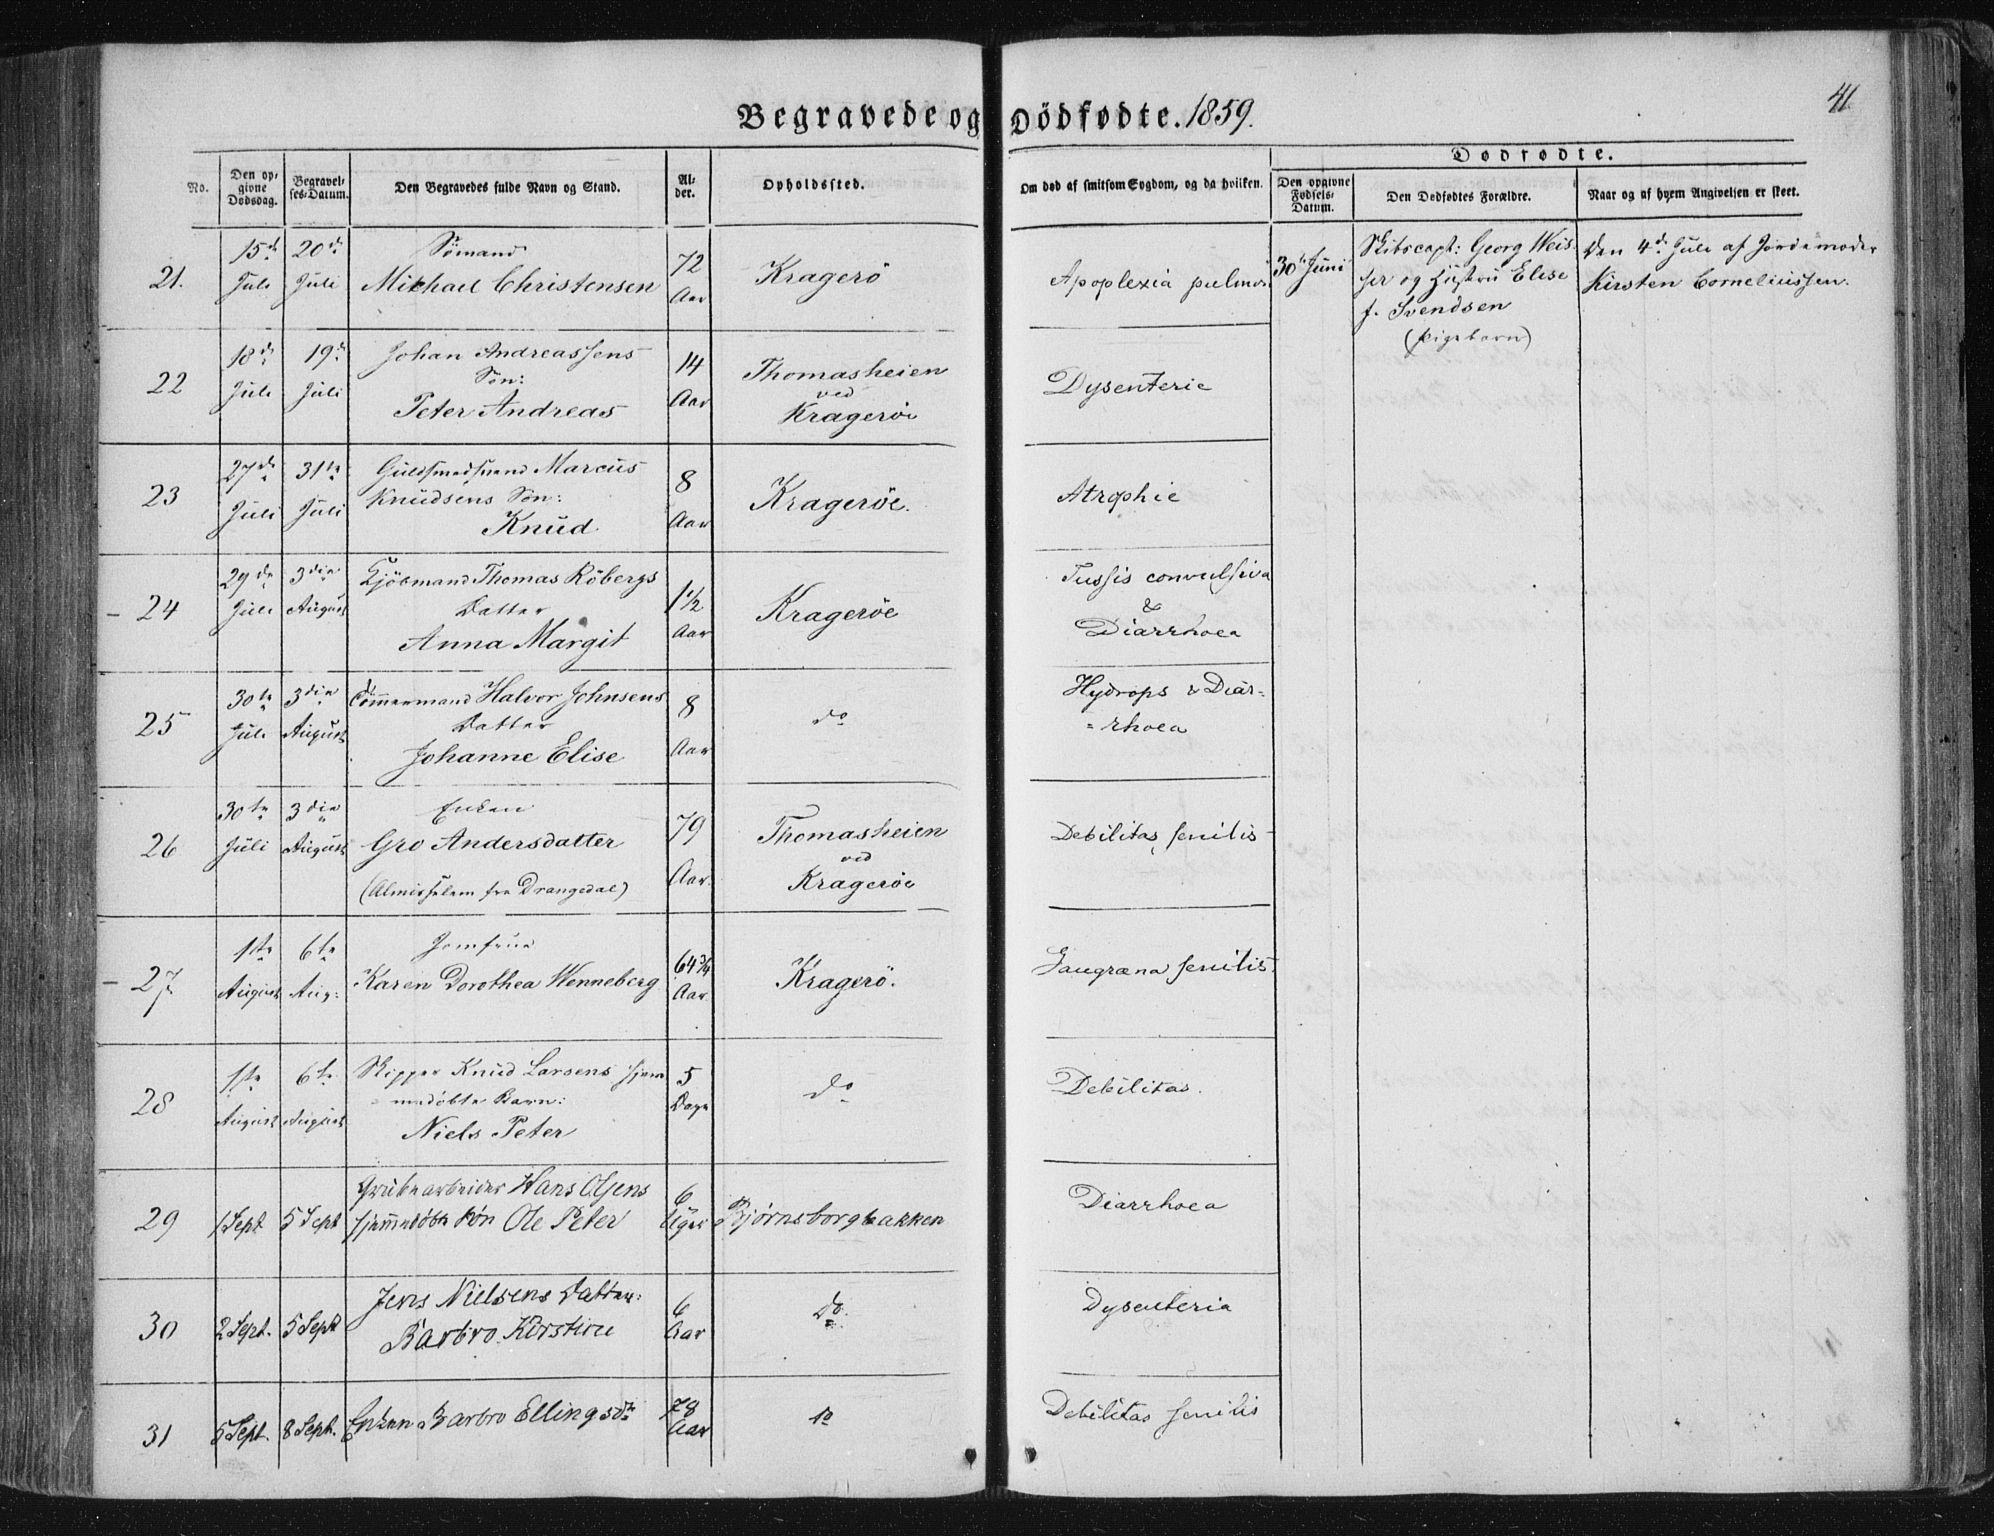 41
Begravede og Dödfødte. 1859.
Dødfødte.
No.
Den opgivne Dødsdag.
Begravelses-Datum.
Den Begravedes fulde Navn og Stand.
Alder.
Opholdssted.
Om død af smitsom Sygdom, og da hvilken.
Den opgivne Fødsels-Datum.
Den Dødfødtes Forældre.
Naar og af hvem Angivelsen er skeet.
21. 15de Juli 20de Juli Sömand
Mikhael Christensen 72 Aar Kragerö Apoplexia pulmon
30te Juni Skibscapt: Georg Weis-
ser og Hustru Elise
f. Svendsen
(Pigebarn)
Den 4de Juli af Jordemoder
Kirsten Corneliussen.
22 18de Juli 19de Juli Johan Andreassens
Søn:
Peter Andreas 14 Aar Thomasheien
ved
Kragerøe Dysenterie
23 27de Juli 31te Juli Guldsmedsvend Marcus
Knudsens Søn:
Knud 8 Aar Kragerøe. Atrophie
- 24 29de Juli 3die August Kjöbmand Thomas Röbergs
Datter
Anna Margit 1 1/2 Aar Kragerøe Tussis convulsiva
&
Diarrhoea
25 30te Juli 3die August Tömmermand Halvor Johnsens
Datter
Johanne Elise 8 Aar do Hydrops & Diar-
=rhoea
26 30te Juli 3die August Enken
Gro Andersdatter
(Almisselem fra Drangedal) 79 Aar. Thomasheien
ved
Kragerøe Debilitas senilis
- 27 1ste August 6te Aug: Jomfrue
Karen Dorothea Wenneberg 64 3/4 Aar. Kragerö. Gangræna senilis.
28 1ste August 6te August Skipper Knud Larsens hjem
=medöbte Barn:
Niels Peter 5 Dage do Debilitas.
29 1 Sept 5 Sept Grubearbeider Hans Olsens
hjemmedøbte Søn Ole Peter 6 Uger Bjørnsborgbakken Diarrhoea
30 2 Sept. 5 Sept Jens Nielsens Datter:
Barbro Kirstine 6 Aar do. Dysenteria
31 5 Sept. 8 Sept. Enken Barbro Ellingsdtr 78 Aar do Debilitas senilis